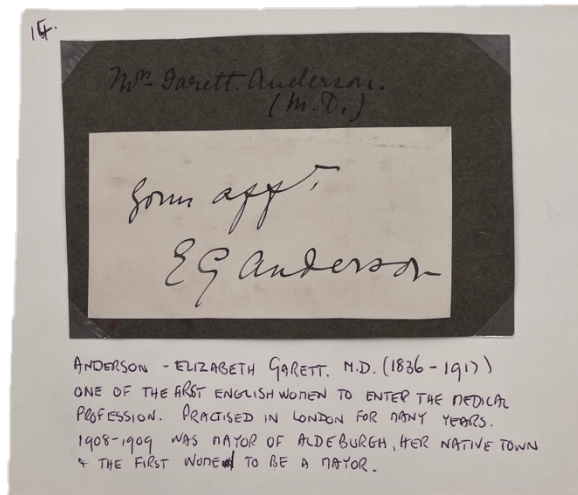 1 Gt.
Mrs. Garett Anderson.
(M.D.)
Yours affly
E G Anderson
ANDERSON - ELIZABETH GARETT. M.D. (1836 - 1917)
ONE OF THE FIRST ENGLISH WOMEN TO ENTER THE MEDICAL
PROFESSION. PRACTISED IN LONDON FOR MANY YEARS.
1908-1909 WAS MAYOR OF ALDEBURGH, HER NATIVE TOWN
& THE FIRST WOMEN TO BE A MAYOR.